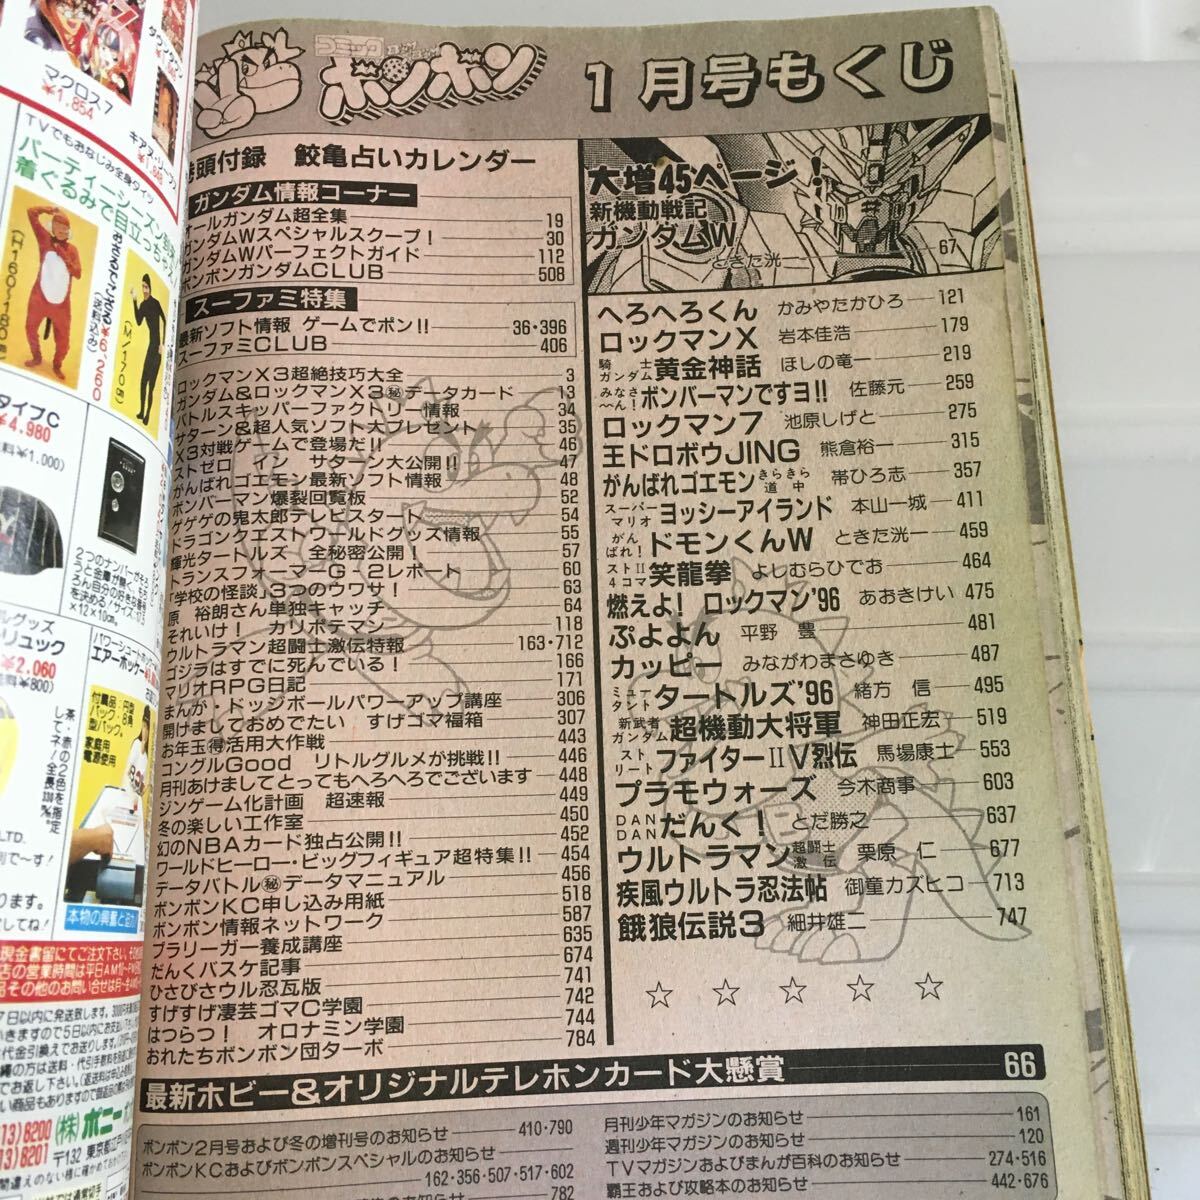 コミック
ボンボン
1月号もくじ
巻頭付録 鮫亀占いカレンダー
ガンダム情報コーナー
オールガンダム超全集 19
ガンダムWスペシャルスクープ! 30
ガンダムWパーフェクトガイド 112
ボンボンガンダムCLUB 508
スーファミ特集
最新ソフト情報 ゲームでポン!! 36・396
スーファミCLUB 406
ロックマンX3超絶技巧大全 3
ガンダム&ロックマンX3㊙データカード 13
バトルスキッパーファクトリー情報 34
サターン&超人気ソフト大プレゼント 35
X3対戦ゲームで登場だ!! 46
ストゼロ イン サターン大公開!! 47
がんばれゴエモン最新ソフト情報 48
ボンバーマン爆裂回覧板 52
ゲゲゲの鬼太郎テレビスタート 54
ドラゴンクエストワールドグッズ情報 55
輝光タートルズ 全秘密公開! 57
トランスフォーマーG・2レポート 60
「学校の怪談」3つのウワサ! 63
原 裕朗さん単独キャッチ 64
それいけ! カリポテマン 118
ウルトラマン超闘士激伝特報 163・712
ゴジラはすでに死んでいる! 166
マリオRPG日記 171
まんが・ドッジボールパワーアップ講座 306
開けましておめでたい すげゴマ福箱 307
お年玉得活用大作戦 443
コングルGood リトルグルメが挑戦!! 446
月刊あけましてとってもへろへろでございます 448
ジンゲーム化計画 超速報 449
冬の楽しい工作室 450
幻のNBAカード独占公開!! 452
ワールドヒーロー・ビッグフィギュア超特集!! 454
データバトル㊙データマニュアル 456
ボンボンKC申し込み用紙 518
ボンボン情報ネットワーク 587
プラリーガー養成講座 635
だんくバスケ記事 674
ひさびさウル忍瓦版 741
すげすげ凄芸ゴマC学園 742
はつらつ! オロナミン学園 744
おれたちボンボン団ターボ 784
大増45ページ!
新機動戦記
ガンダムW
ときた洸一 67
へろへろくん かみやたかひろ 121
ロックマンX 岩本佳浩 179
騎士ガンダム黄金神話 ほしの竜一 219
みなさ〜ん!ボンバーマンですヨ!! 佐藤元 259
ロックマン7 池原しげと 275
王ドロボウJING 熊倉裕一 315
がんばれゴエモンきらきら道中 帯ひろ志 357
スーパーマリオヨッシーアイランド 本山一城 411
がんばれ!ドモンくんW ときた洸一 459
ストII4コマ笑龍拳 よしむらひでお 464
燃えよ! ロックマン'96 あおきけい 475
ぷよよん 平野 豊 481
カッピー みながわまさゆき 487
ミュータントタートルズ'96 緒方 信 495
新武者ガンダム超機動大将軍 神田正宏 519
ストリートファイターII V烈伝 馬場康士 553
プラモウォーズ 今木商事 603
DANDANだんく! とだ勝之 637
ウルトラマン超闘士激伝 栗原 仁 677
疾風ウルトラ忍法帖 御童カズヒコ 713
餓狼伝説3 細井雄二 747
☆ ☆ ☆ ☆ ☆
最新ホビー&オリジナルテレホンカード大懸賞 66
ボンボン2月号および冬の増刊号のお知らせ 410・790
ボンボンKCおよびボンボンスペシャルのお知らせ
162・356・507・517・602
782
月刊少年マガジンのお知らせ 161
週刊少年マガジンのお知らせ 120
TVマガジンおよびまんが百科のお知らせ 274・516
覇王および攻略本のお知らせ 442・676
マクロス7
¥1,854
TVでもおなじみ全身タイツ
パーティーシーズン到来
着ぐるみで目立っちゃえ
¥6,260
(M/170g)
タイプC
¥4,980
料¥1,000)
2つのナンバーがそ
×12×10cm。
ルグッズ
リュック
¥2,060
料¥800)
パワーシュートホッケー
エアーホッケー
家庭用
電源使用
本物の興奮と迫力
LTD.
現金書留にてご注文下さい。
店の営業時間は平日AM10〜PM
7日以内に発送致します。
13)8200 (株)ポニー
13)8201 〒132 東京都江戸川